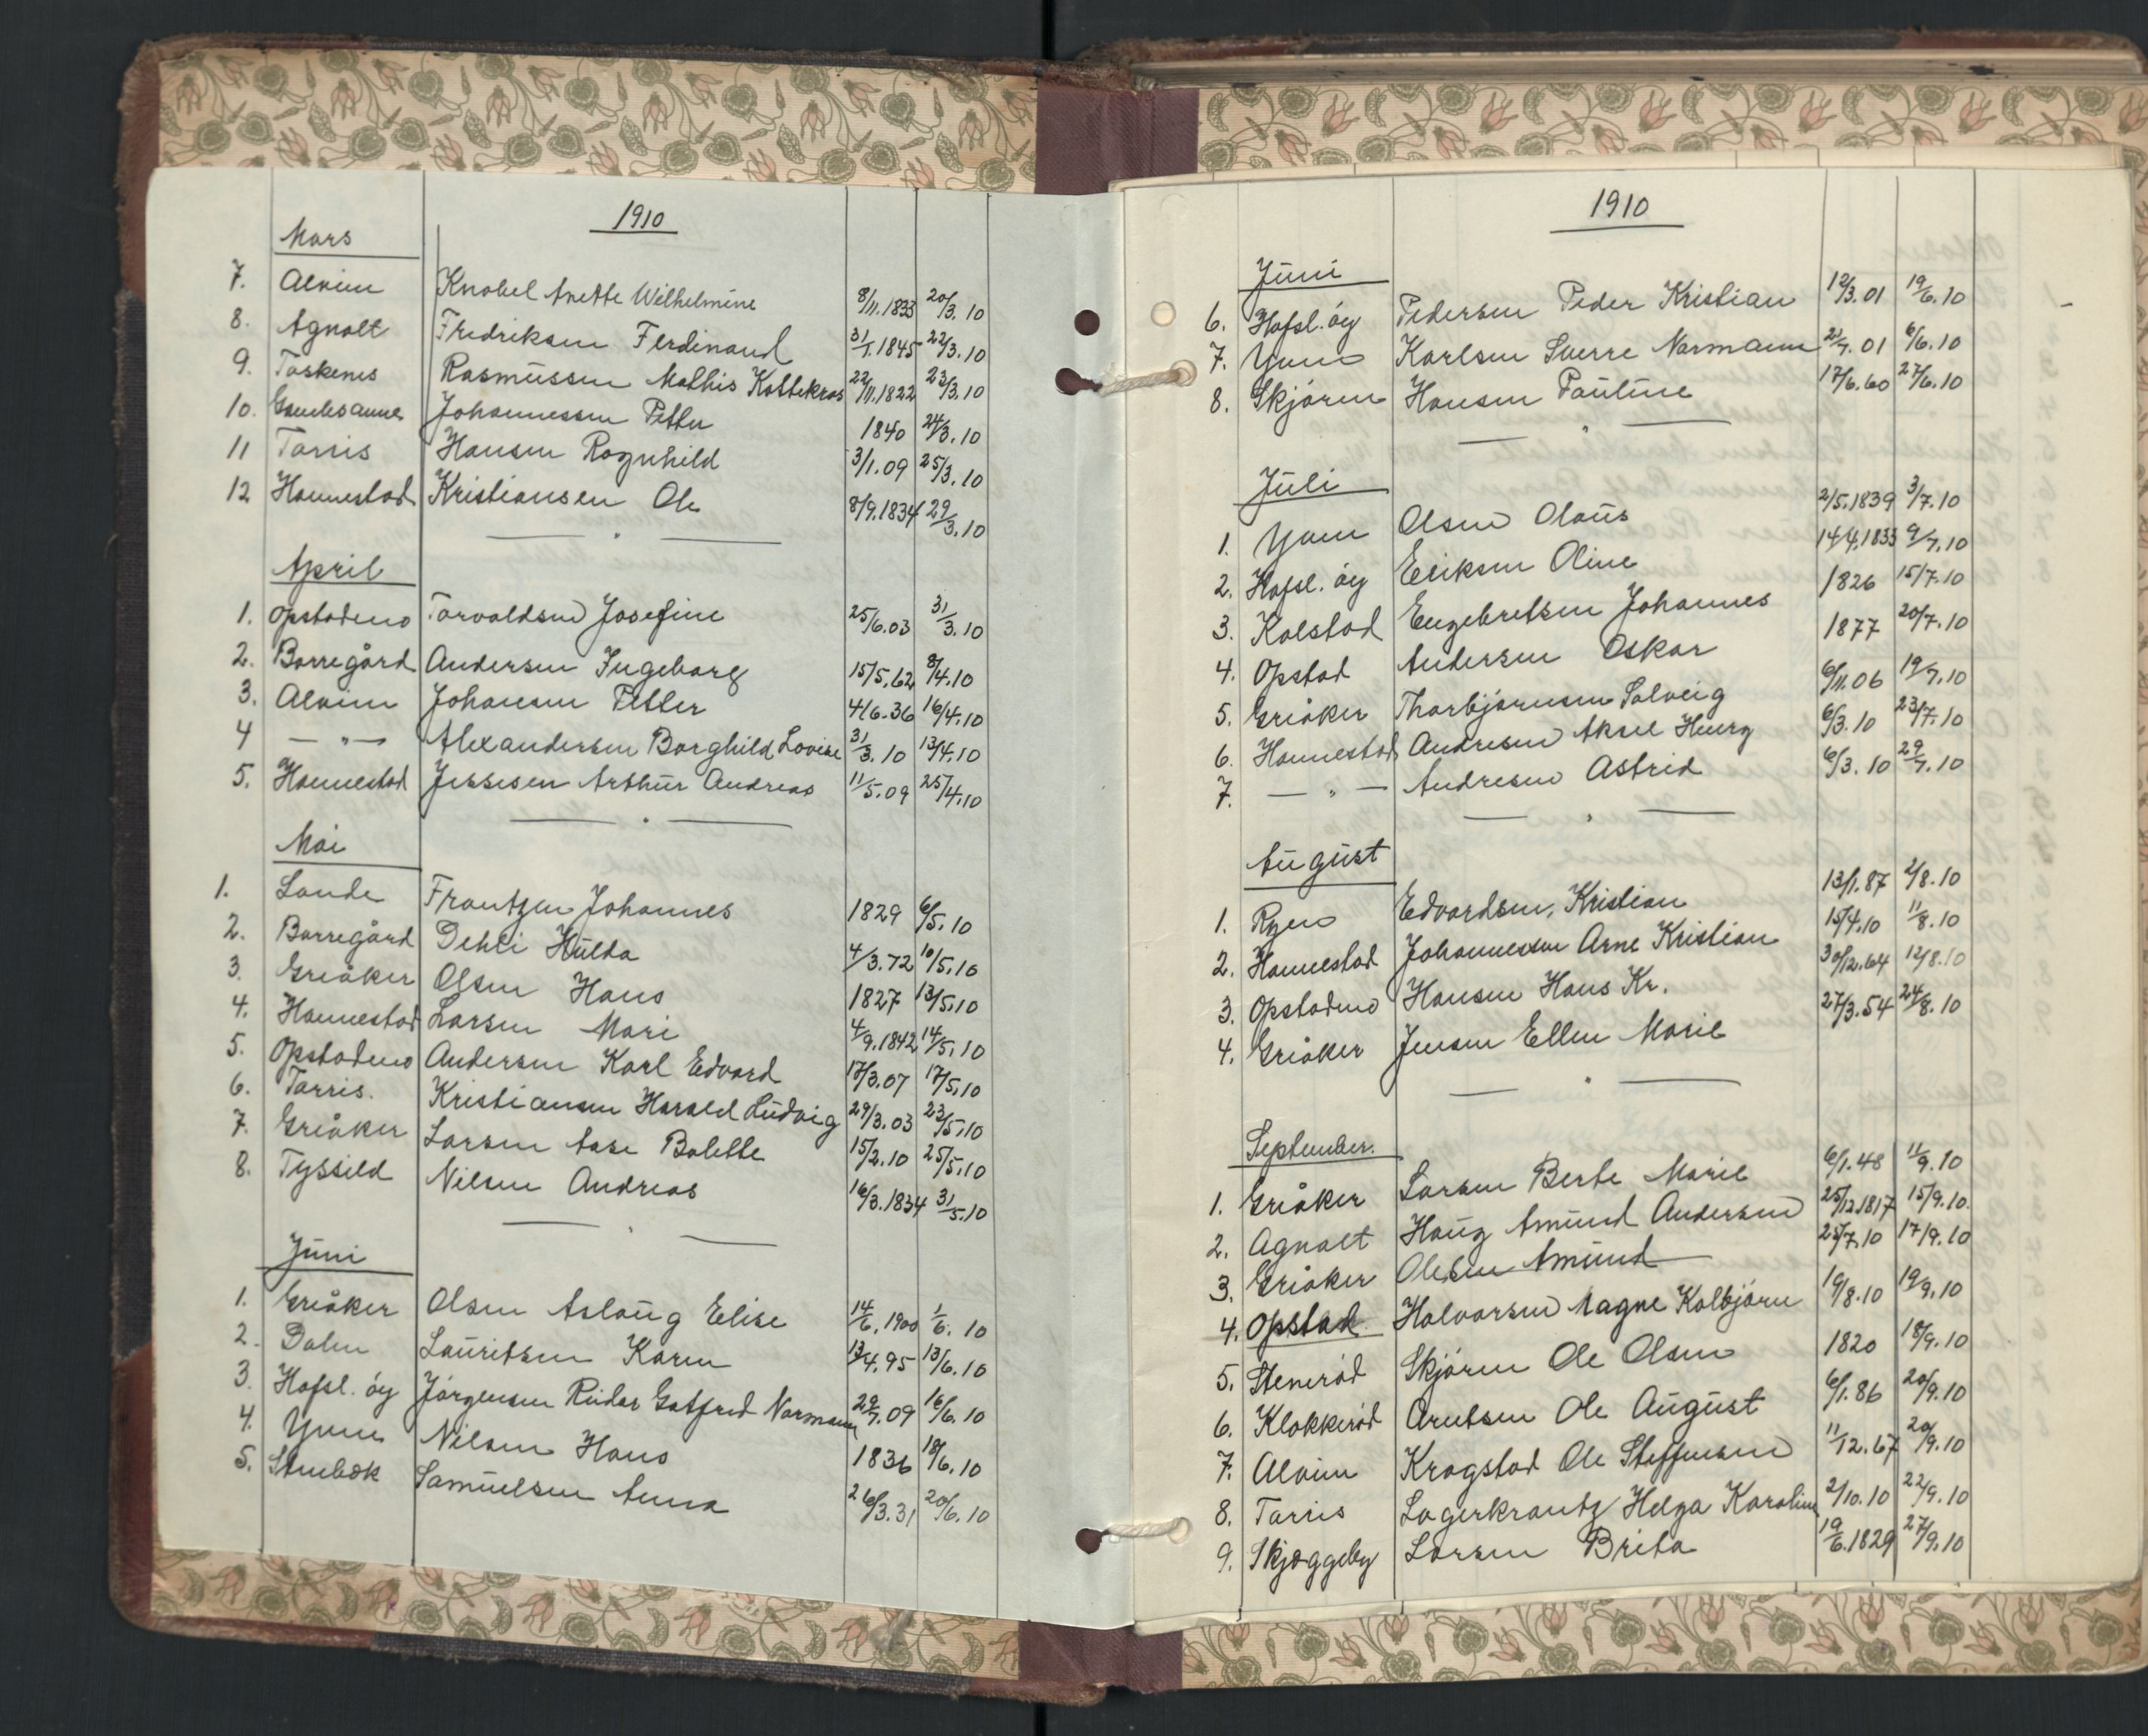 1910
Mars
7. Alvim Knobel Anette Wilhelmine 8/11.1833 20/3.10
8. Agnalt Fredriksen Ferdinand 31/1.1845 22/3.10
9. Taskenes Rasmussen Mathis 22/11.1822 23/3.10
10. Johannessen Petter 1840 24/3.10
11 Tarris Hansen Ragnhild 3/1.09 25/3.10
12 Hannestad Kristiansen Ole 8/9.1834 29/3.10
April
1. Opstadmo Torvaldsen Josefine 25/6.03 31/3.10
2. Borregård Andersen Ingeborg 15/5.62 8/4.10
3. Alvim Johansen Petter 4/6.36 16/4.10
4 — " — Alexandersen Borghild Lovise 31/3.10 13/4.10
5. Hannestad Jessesen Arthur Andreas 11/5.09 25/4.10
Mai
1. Lande Frantzen Johannes 1829 6/5.10
2. Borregård Dehli Hulda 4/3.72 10/5.10
3. Greåker Olsen Hans 1827 13/5.10
4. Hannestad Larsen Mari 4/9.1842 14/5.10
5. Opstadmo Andersen Karl Edvard 17/3.07 17/5.10
6. Tarris. Kristiansen Harald Ludvig 29/3.03 23/5.10
7. Greåker Larsen Aase Bolette 15/2.10 25/5.10
8. Tyssild Nilsen Andreas 16/3.1834 31/5.10
Juni
1. Greåker Olsen Aslaug Elise 14/6.1900 1/6.10
2. Dalen Lauritsen Karen 13/4.95 13/6.10
3. Hafsl. öy Jörgensen Reidar Gotfred Normann 29/7.09 16/6.10
4. Yven Nilsen Hans 1836 18/6.10
5. Stenbæk Samuelsen Anna 26/3.31 20/6.10
1910
Juni
6. Hafsl. öy Pedersen Peder Kristian 12/3.01 19/6.10
7. Yven Karlsen Sverre Normann 21/7.01 6/6.10
8. Skjören Hansen Pauline 17/6.60 27/6.10
Juli
1. Yven Olsen Olaus 2/5.1839 3/7.10
2. Hafsl. öy Eriksen Oline 14/4.1833 9/7.10
3. Kolstad Engebretsen Johannes 1826 15/7.10
4. Opstad Andersen Oskar 1877 20/7.10
5. Greåker Thorbjörnsen Solveig 6/11.06 19/7.10
6. Hannestad Andresen Aksel Henry 6/3.10 23/7.10
7. — " — Andresen Astrid 6/3.10 29/7.10
August
1. Ryen Edvardsen, Kristian 13/1.87 2/8.10
2. Hannestad Johannessen Arne Kristian 15/4.10 11/8.10
3. Opstadmo Hansen Hans Kr. 30/12.64 12/8.10
4. Greåker Jensen Ellen Marie 27/3.54 24/8.10
September.
1. Greåker Larsen Berte Marie 6/1.48 11/9.10
2. Agnalt Haug Amund Andersen 25/12.1817 15/9.10.
3. Greåker Olesen Amund 25/7.10 17/9.10
4. Opstad. Halvorsen Magne Kolbjörn 19/8.10 19/9.10
5. Stenröd Skjören Ole Olsen 1820 18/9.10
6. Klokkeröd Arntsen Ole August 6/1.86 20/9.10
7. Alvim Kragstad Ole Steffensen 11/12.67 20/9.10
8. Tarris Lagerkrantz Helga Karoline 2/10.10 22/9.10
9. Skjæggeby Larsen Brita 19/6.1829 27/9.10